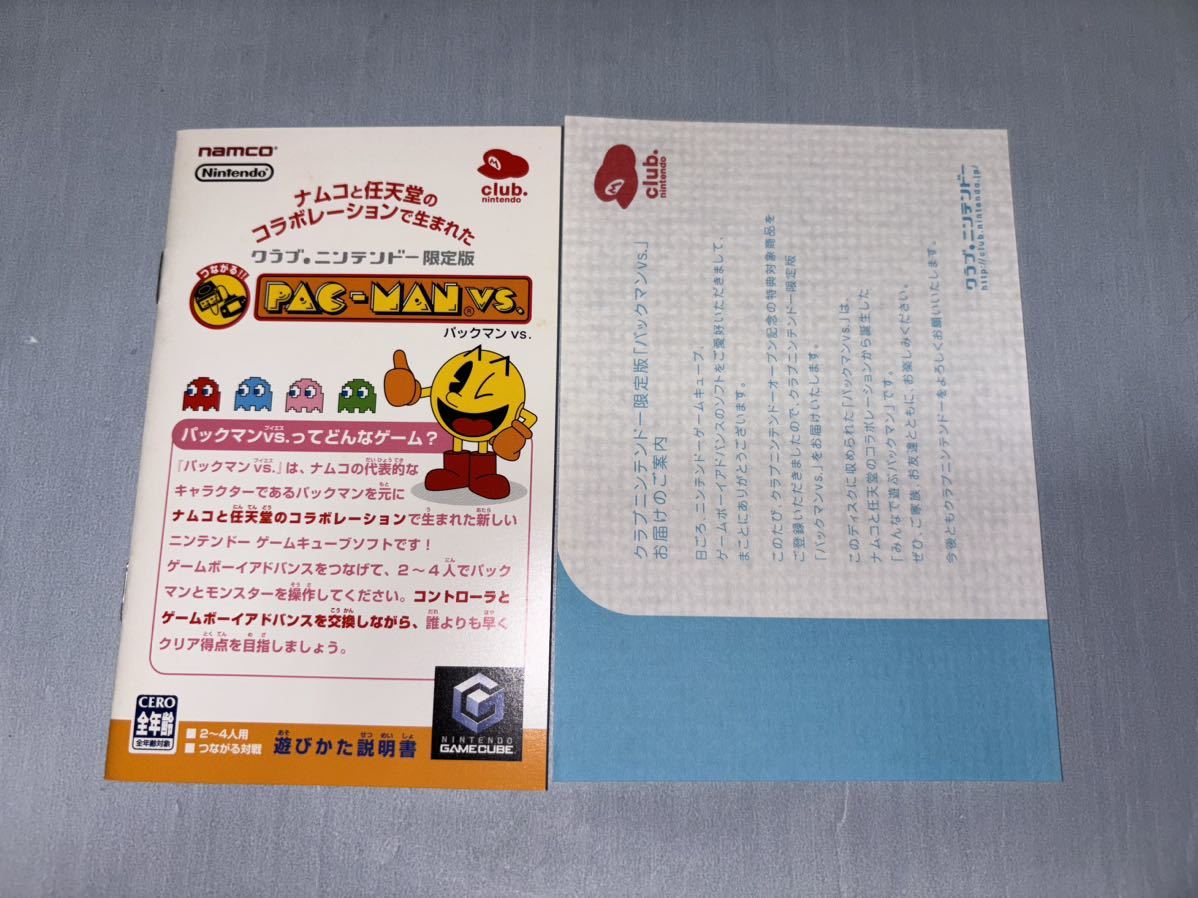 namco®
Nintendo®
club.
nintendo
ナムコと任天堂の
コラボレーションで生まれた
クラブ。ニンテンドー限定版
つながる!!
PAC-MAN® VS.
パックマン vs.
パックマンvs.ってどんなゲーム？
ブイエス
『パックマン vs.』は、ナムコの代表的な
ブイエス だいひょうてき
キャラクターであるパックマンを元に
もと
ナムコと任天堂のコラボレーションで生まれた新しい
にんてんどう う あたら
ニンテンドー ゲームキューブソフトです！
ゲームボーイアドバンスをつなげて、２～４人でパック
にん
マンとモンスターを操作してください。コントローラと
そうさ
ゲームボーイアドバンスを交換しながら、誰よりも早く
こうかん だれ はや
クリア得点を目指しましょう。
とくてん めざ
CERO
全年齢
全年齢対象
■ 2～4人用
■ つながる対戦
遊びかた説明書
あそ せつめいしょ
NINTENDO
GAMECUBE™
club.
nintendo
クラブニンテンドー限定版「パックマンvs.」
お届けのご案内
日ごろ、ニンテンドーゲームキューブ、
ゲームボーイアドバンスのソフトをご愛好いただきまして、
まことにありがとうございます。
このたび、クラブニンテンドーオープン記念の特典対象商品を
ご登録いただきましたので、クラブニンテンドー限定版
「パックマンvs.」をお届けいたします。
このディスクに収められた「パックマンvs.」は、
ナムコと任天堂のコラボレーションから誕生した
「みんなで遊ぶパックマン」です。
ぜひ、ご家族、お友達とともに、お楽しみください。
今後ともクラブニンテンドーをよろしくお願いいたします。
クラブ。ニンテンドー
http://club.nintendo.jp/